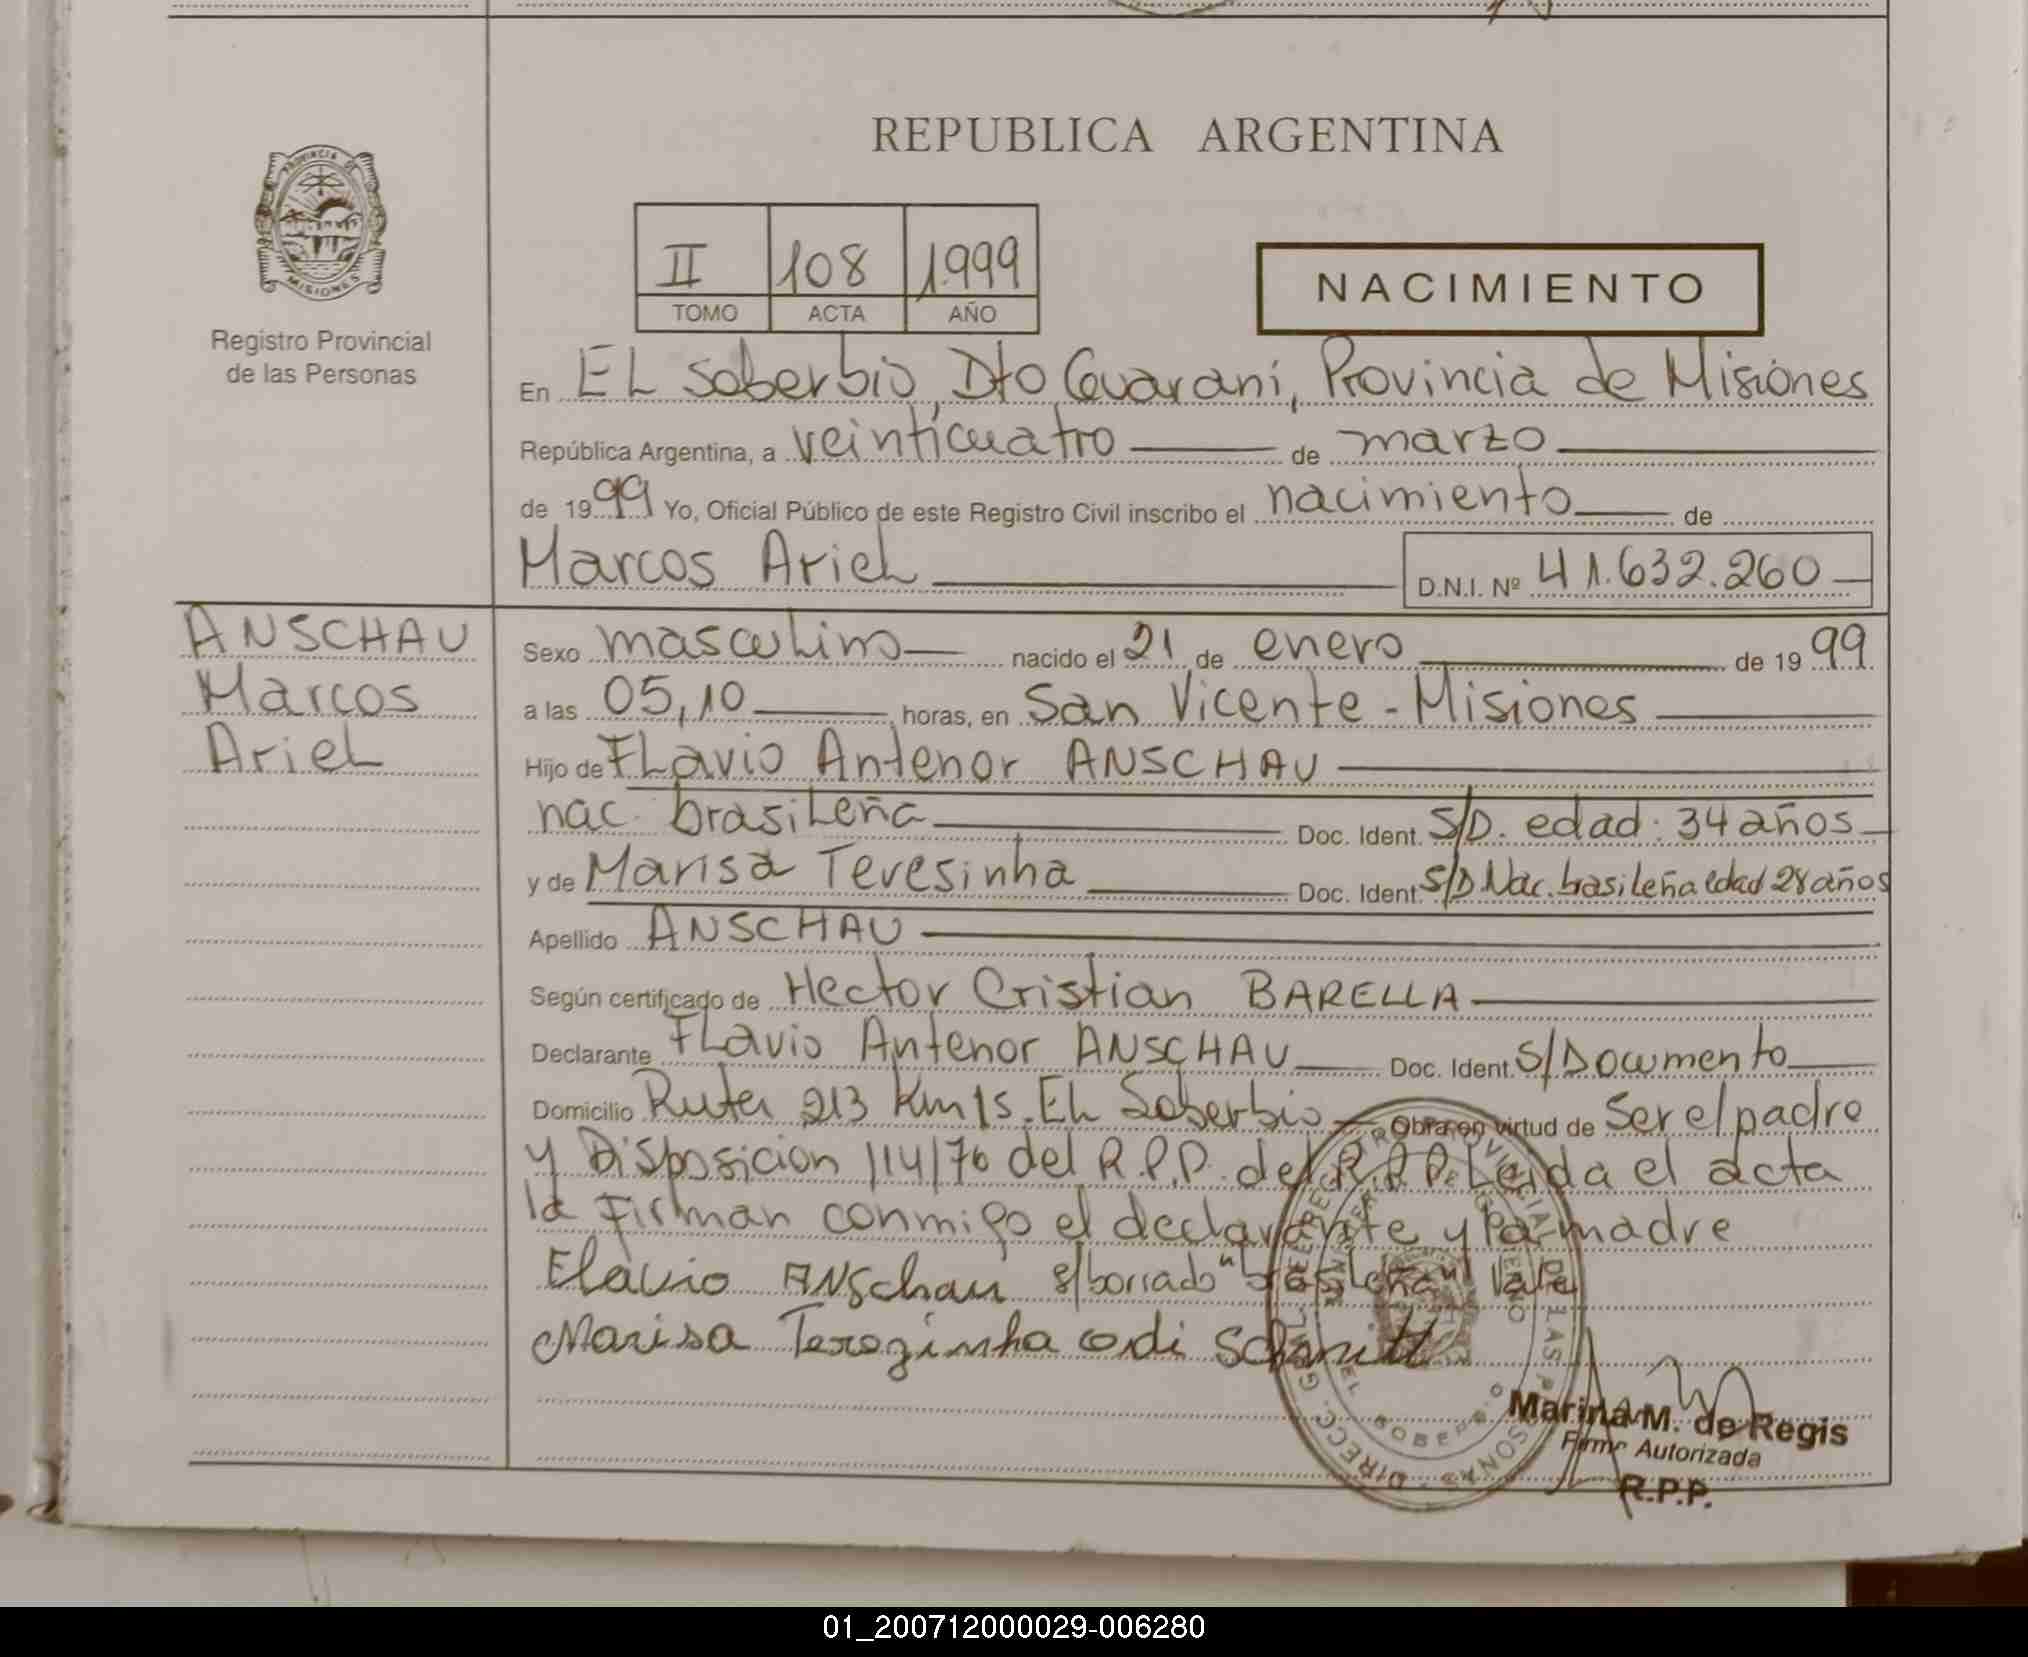 REPUBLICA ARGENTINA
PROVINCIA DE
MISIONES
Registro Provincial
de las Personas
II 108 1.999
TOMO ACTA AÑO
NACIMIENTO
En EL Soberbio, Dto Guaraní, Provincia de Misiones
República Argentina, a veinticuatro de marzo
de 1999 Yo, Oficial Público de este Registro Civil inscribo el nacimiento de
Marcos Ariel D.N.I. Nº 41.632.260
ANSCHAU
Marcos
Ariel
Sexo masculino nacido el 21 de enero de 1999
a las 05,10 horas, en San Vicente - Misiones
Hijo de Flavio Antenor ANSCHAU
nac. brasileña Doc. Ident. S/D. edad: 34 años
y de Marisa Teresinha Doc. Ident. S/D Nac. brasileña edad 28 años
Apellido ANSCHAU
Según certificado de Hector Cristian BARELLA
Declarante Flavio Antenor ANSCHAU Doc. Ident. S/Documento
Domicilio Ruta 213 Km 15. El Soberbio Obra en virtud de ser el padre
y Disposición 114/76 del R.P.P. del R.P.P. Leida el acta
la firman conmigo el declarante y la madre
Flavio Anschau s/borrado "brasileña" Vale
Marisa Terezinha odi Schmitt
Marina M. de Regis
Firma Autorizada
R.P.P.
01_200712000029-006280